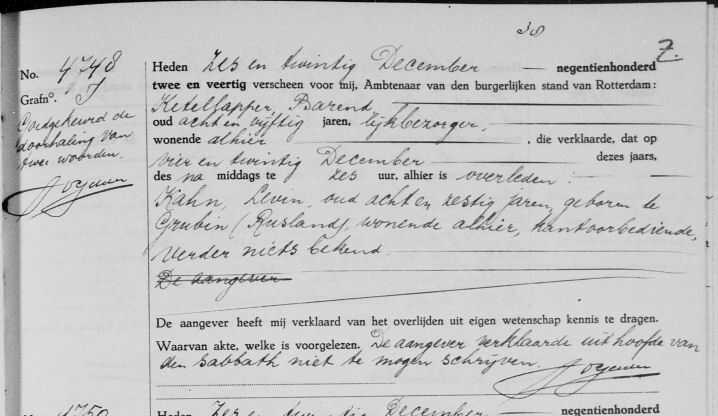 38
Z.
No. 4748
Grafn°. J
Goedgekeurd de
doorhaling van
twee woorden.
Heden zes en twintig December negentienhonderd
twee en veertig verscheen voor mij, Ambtenaar van den burgerlijken stand van Rotterdam:
Ketellapper, Barend
oud acht en vijftig jaren, lijkbezorger,
wonende alhier , die verklaarde, dat op
vier en twintig December dezes jaars,
des na middags te zes uur, alhier is overleden:
Kahn, Levin, oud acht en zestig jaren, geboren te
Grubin (Rusland), wonende alhier, kantoorbediende,
verder niets bekend.
De aangever
De aangever heeft mij verklaard van het overlijden uit eigen wetenschap kennis te dragen.
Waarvan akte, welke is voorgelezen. De aangever verklaarde uit hoofde van
den Sabbath niet te mogen schrijven.
No. 4750
Heden zes en twintig December negentienhonderd